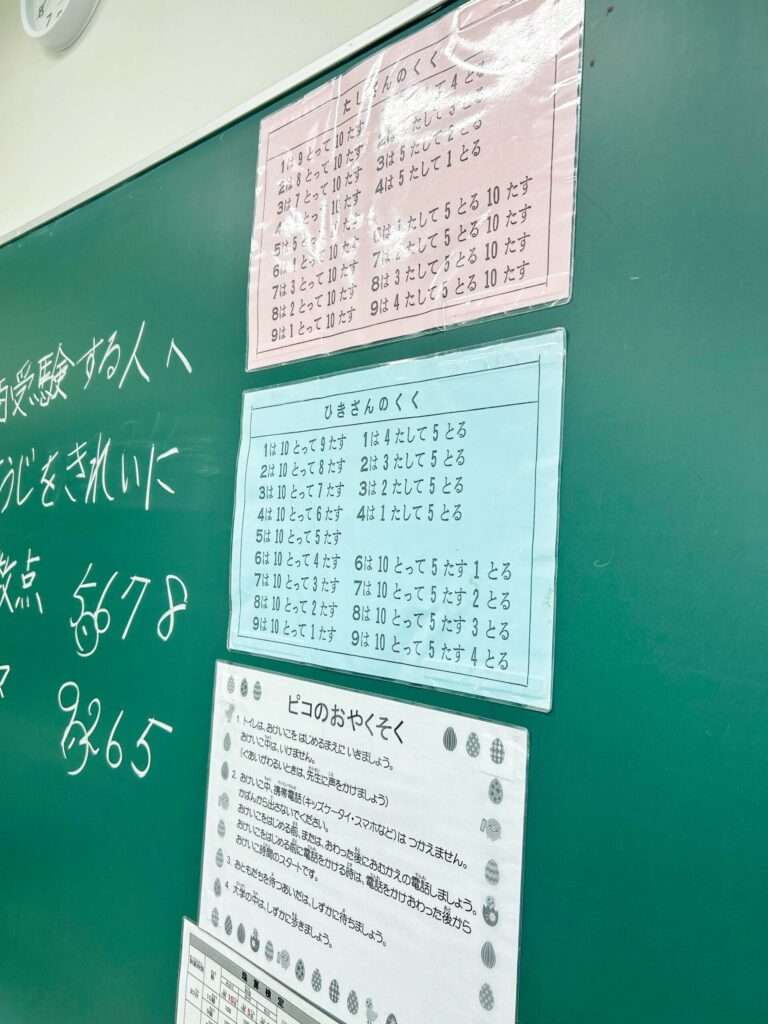 受験する人へ
うじをきれいに
点 5678
9265
たしざんのくく
1は 9 とって 10 たす
2は 8 とって 10 たす
3は 7 とって 10 たす
とって 10 たす
5は 5 10 たす
6は とって 10 たす
7は 3 とって 10 たす
8は 2 とって 10 たす
9は 1 とって 10 たす
4 とる
たして 3 とる
3は 5 たして 2 とる
4は 5 たして 1 とる
たして 5 とる 10 たす
7は 2 たして 5 とる 10 たす
8は 3 たして 5 とる 10 たす
9は 4 たして 5 とる 10 たす
ひきざんのくく
1は 10 とって 9 たす
2は 10 とって 8 たす
3は 10 とって 7 たす
4は 10 とって 6 たす
5は 10 とって 5 たす
6は 10 とって 4 たす
7は 10 とって 3 たす
8は 10 とって 2 たす
9は 10 とって 1 たす
1は 4 たして 5 とる
2は 3 たして 5 とる
3は 2 たして 5 とる
4は 1 たして 5 とる
6は 10 とって 5 たす 1 とる
7は 10 とって 5 たす 2 とる
8は 10 とって 5 たす 3 とる
9は 10 とって 5 たす 4 とる
ピコのおやくそく
1. トイレは、おけいこを はじめるまえに いきましょう。
おけいこ中は、いけません。
（ぐあいがわるいときは、先生に声をかけましょう）
2. おけいこ中、携帯電話（キッズケータイ・スマホなど）は つかえません。
かばんから出さないでください。
おけいこをはじめる前、または、おわった後におむかえの電話しましょう。
おけいこをはじめる前に電話をかける時は、電話をかけおわった後から
おけいこ時間のスタートです。
3. おともだちを待つあいだは、しずかに待ちましょう。
4. 大学の中は、しずかに歩きましょう。
珠算検定